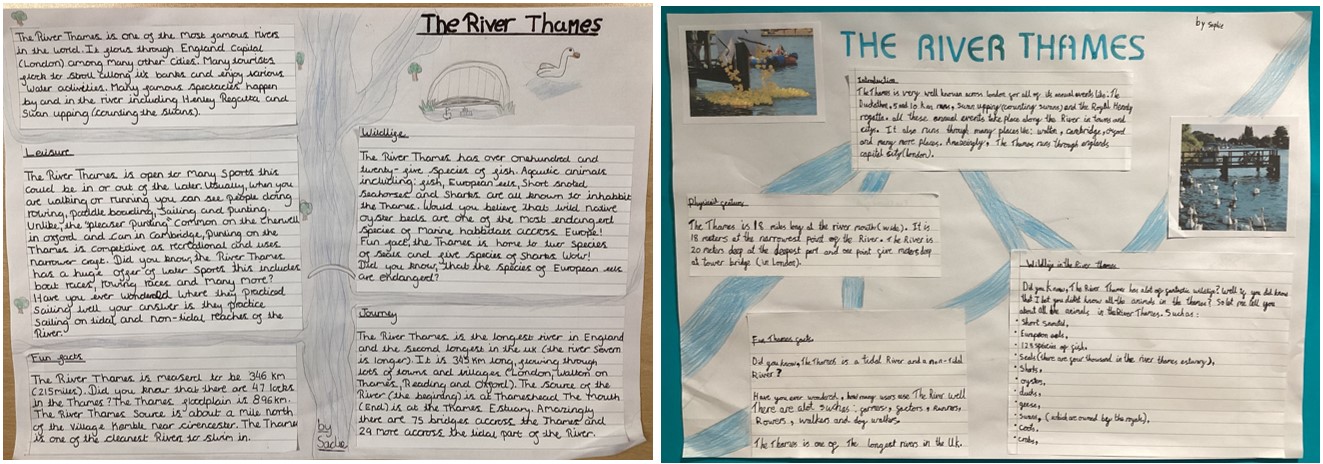 The River Thames
The River Thames is one of the most famous rivers
in the world. It flows through England Capital
(London) among many other cities. Many tourists
flock to stroll along its banks and enjoy various
water activities. Many famous spectacles happen
by and in the river including Henley Regatta and
Swan upping (counting the swans).
Leisure
The River Thames is open to many sports this
could be in or out of the water. Usually, when you
are walking or running you can see people doing
rowing, paddle boarding, sailing and punting.
Unlike, the "pleaser punting" common on the cherwell
in oxford and cam in Cambridge, punting on the
Thames is competative as recreational and uses
narrower craft. Did you know, the River Thames
has a huge offer of water sports this includes
boat races, rowing races and many more?
Have you ever wondered where they practiced
sailing well your answer is they practice
sailing on tidal and non-tidal reaches of the
River.
Fun facts
The River Thames is measerd to be 346 km
(215 miles). Did you know that there are 47 locks
in the Thames? The Thames floodplain is 896km.
The River Thames source is about a mile north
of the village Kemble near cirencester. The Thames
is one of the cleanest Rivers to swim in.
by
Sadie
Wildlife
The River Thames has over onehundred and
twenty-five species of fish. Aquatic animals
including: fish, European eels, Short snoted
seahorses and Sharks are all known to inhabbit
the Thames. Would you believe that wild native
oyster beds are one of the most endangerd
species of Marine habbidats accross Europe!
Fun fact, the Thames is home to two species
of seals and five species of Sharks Wow!
Did you know, that the species of European eels
are endangered?
Journey
The River Thames is the longest river in England
and the second longest in the uk (the river Severn
is longer). It is 345 km long, flowing through
lots of towns and villages (London, walton on
Thames, Reading and Oxford). The source of the
River (the beginning) is at Thameshead. The Mouth
(End) is at the Thames Estuary. Amazingly
there are 75 bridges accross the Thames and
29 more accross the tidal part of the River.
by Sophie
THE RIVER THAMES
Introduction
The Thames is very well known across london for all of its annual events like: The
Duckathon, 5 and 10 km runs, Swan upping (counting swans) and the Royal Henly
regatta. all these annual events take place along the River in towns and
citys. It also runs through many places like: walton, cambridge, oxford
and many more places. Amazingly, The Thames runs through englands
capital city (london).
Physical features
The Thames is 18 miles long at the river mouth (wide). It is
18 meters at the narrowest point of the River. The River is
20 meters deep at the deepest part and one point five meters deep
at tower bridge (in London).
Fun Thames facts
Did you know, The Thames is a tidal River and a non-tidal
River?
Have you ever wondered, how many users use The River well
There are alot suchas: farmers, factors, Runners,
Rowers, walkers and dog walkers.
The Thames is one of The longest rivers in the U.k.
Wildlife in the River Thames
Did you know, The River Thames has alot of fantastic wildlife? Well if you did know
that I bet you didn't know all the animals in the thames? So let me tell you
about all the animals in the River Thames. Such as:
• Short
• European eels,
• 125 species of fish,
• Seals (there are four thousand in the river thames estuary),
• Sharks,
• oysters,
• ducks,
• geese,
• swans, (which are owned by the royals),
• Coots,
• crabs,